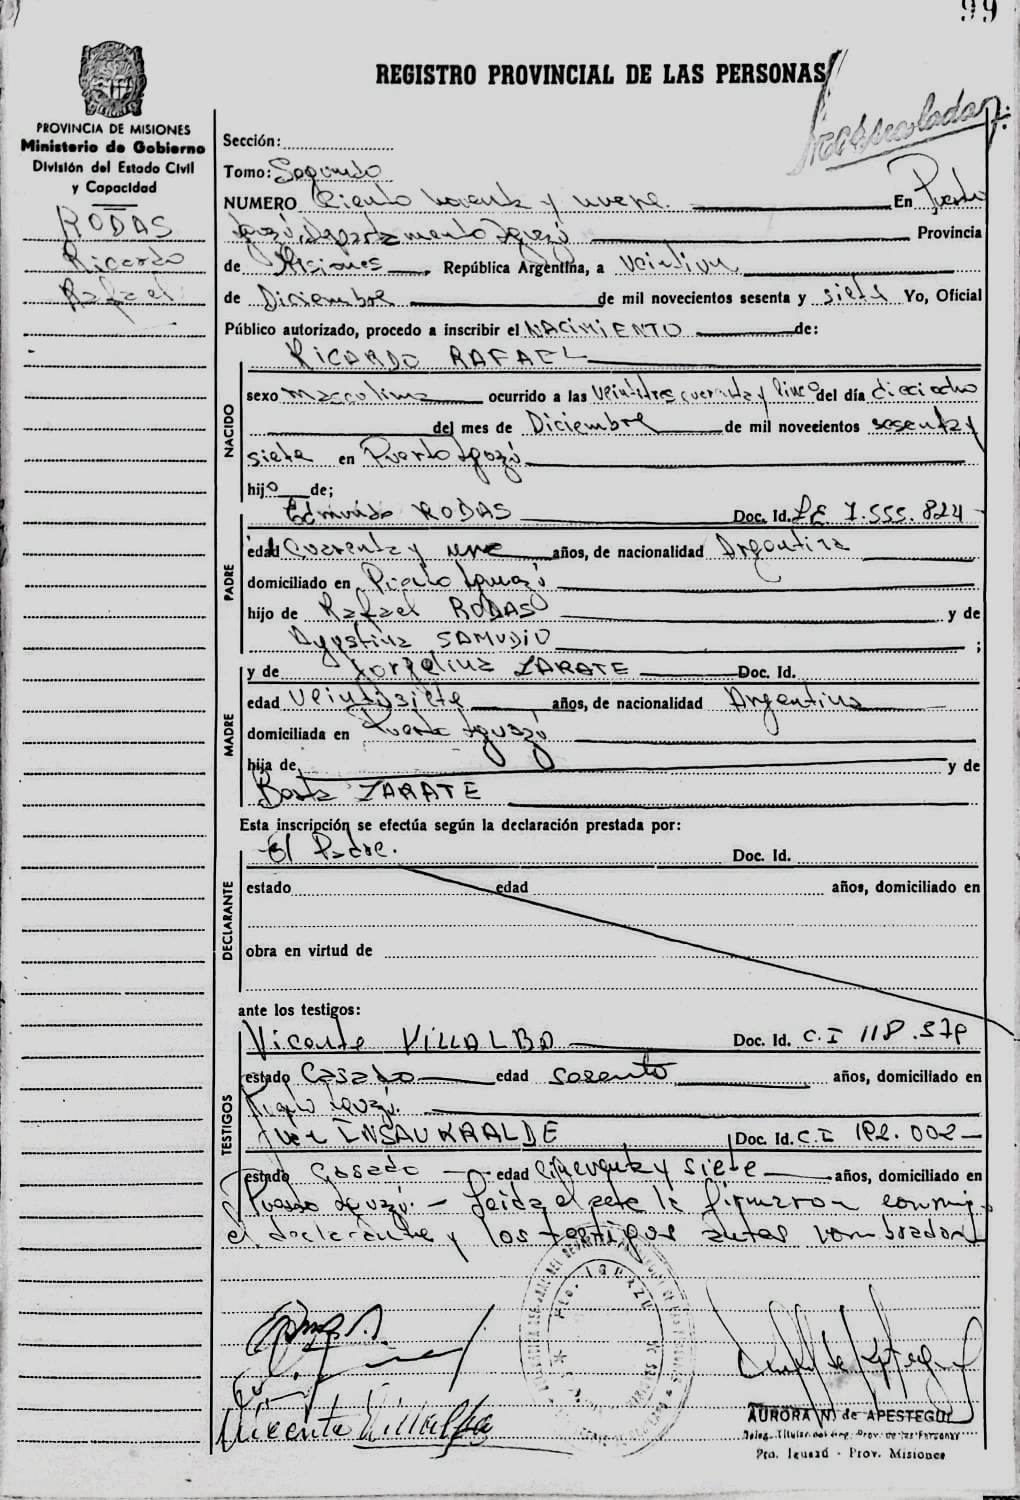 99
REGISTRO PROVINCIAL DE LAS PERSONAS
PROVINCIA DE MISIONES
Ministerio de Gobierno
División del Estado Civil
y Capacidad
RODAS
Ricardo
Rafael
Sección:
Tomo: Segundo
NUMERO Ciento noventa y nueve En Puerto
Iguazú, Departamento Iguazú Provincia
de Misiones, República Argentina, a veintiun
de Diciembre de mil novecientos sesenta y siete Yo, Oficial
Público autorizado, procedo a inscribir el NACIMIENTO de:
RICARDO RAFAEL
NACIDO
sexo masculino ocurrido a las veintitres cuarenta y cinco del día dieciocho
del mes de Diciembre de mil novecientos sesenta y
siete en Puerto Iguazú
hijo de;
Edmundo RODAS Doc. Id. LE 7.555.824
PADRE
edad Cuarenta y uno años, de nacionalidad Argentina
domiciliado en Puerto Iguazú
hijo de Rafael RODAS y de
Agustina SAMUDIO ;
y de Jorgelina ZARATE Doc. Id.
MADRE
edad Veintisiete años, de nacionalidad Argentina
domiciliada en Puerto Iguazú
hija de y de
ZARATE
Esta inscripción se efectúa según la declaración prestada por:
El Padre. Doc. Id.
DECLARANTE
estado edad años, domiciliado en
obra en virtud de
ante los testigos:
Vicente VILLALBA Doc. Id. C.I 118.379
TESTIGOS
estado Casado edad sesenta años, domiciliado en
Puerto Iguazú.
INSAURRALDE Doc. Id. C.I 182.002
estado Casado edad cincuenta y siete años, domiciliado en
Puerto Iguazú. - Leida el acta la firmaron conmigo
el declarante y los testigos antes nombrados
Vicente Villalba
PTO. IGUAZU
AURORA N. de APESTEGUI
Deleg. Titular del Reg. Prov. de las Personas
Pto. Iguazú - Prov. Misiones